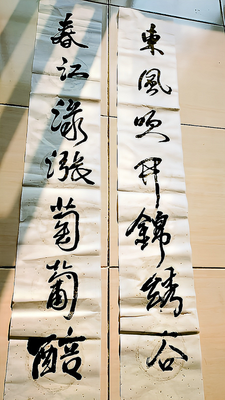 東風吹开錦綉谷
春江渌漲葡萄醅